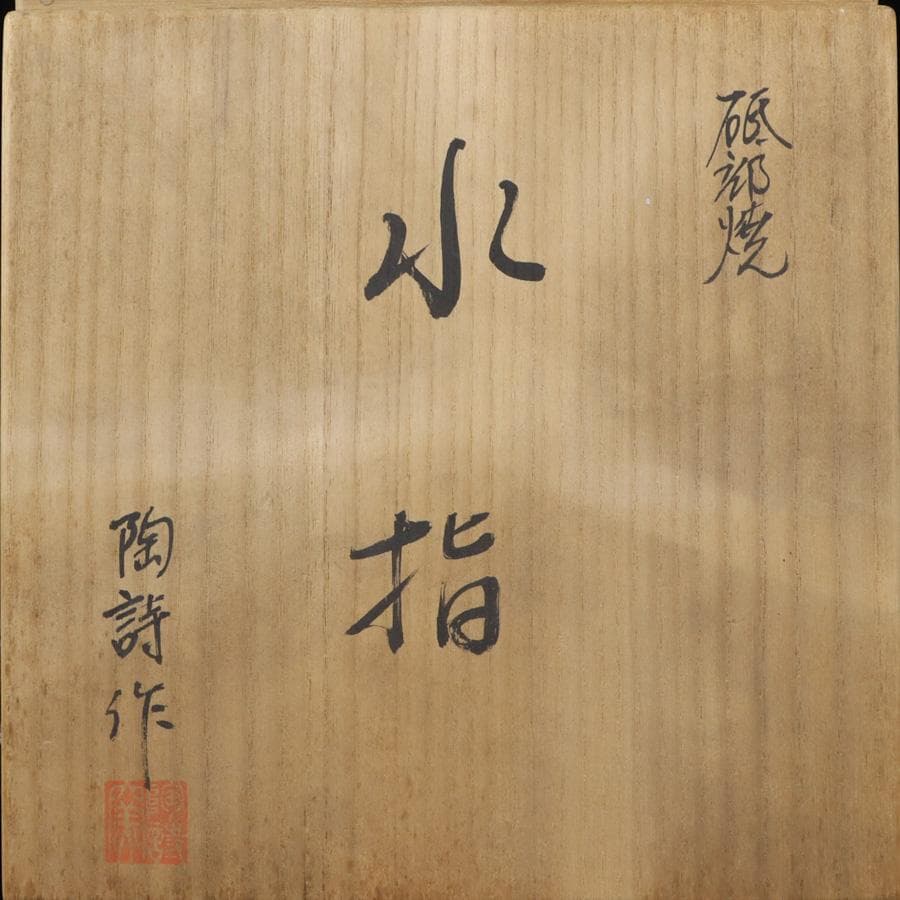 砥部焼
水指
陶詩作